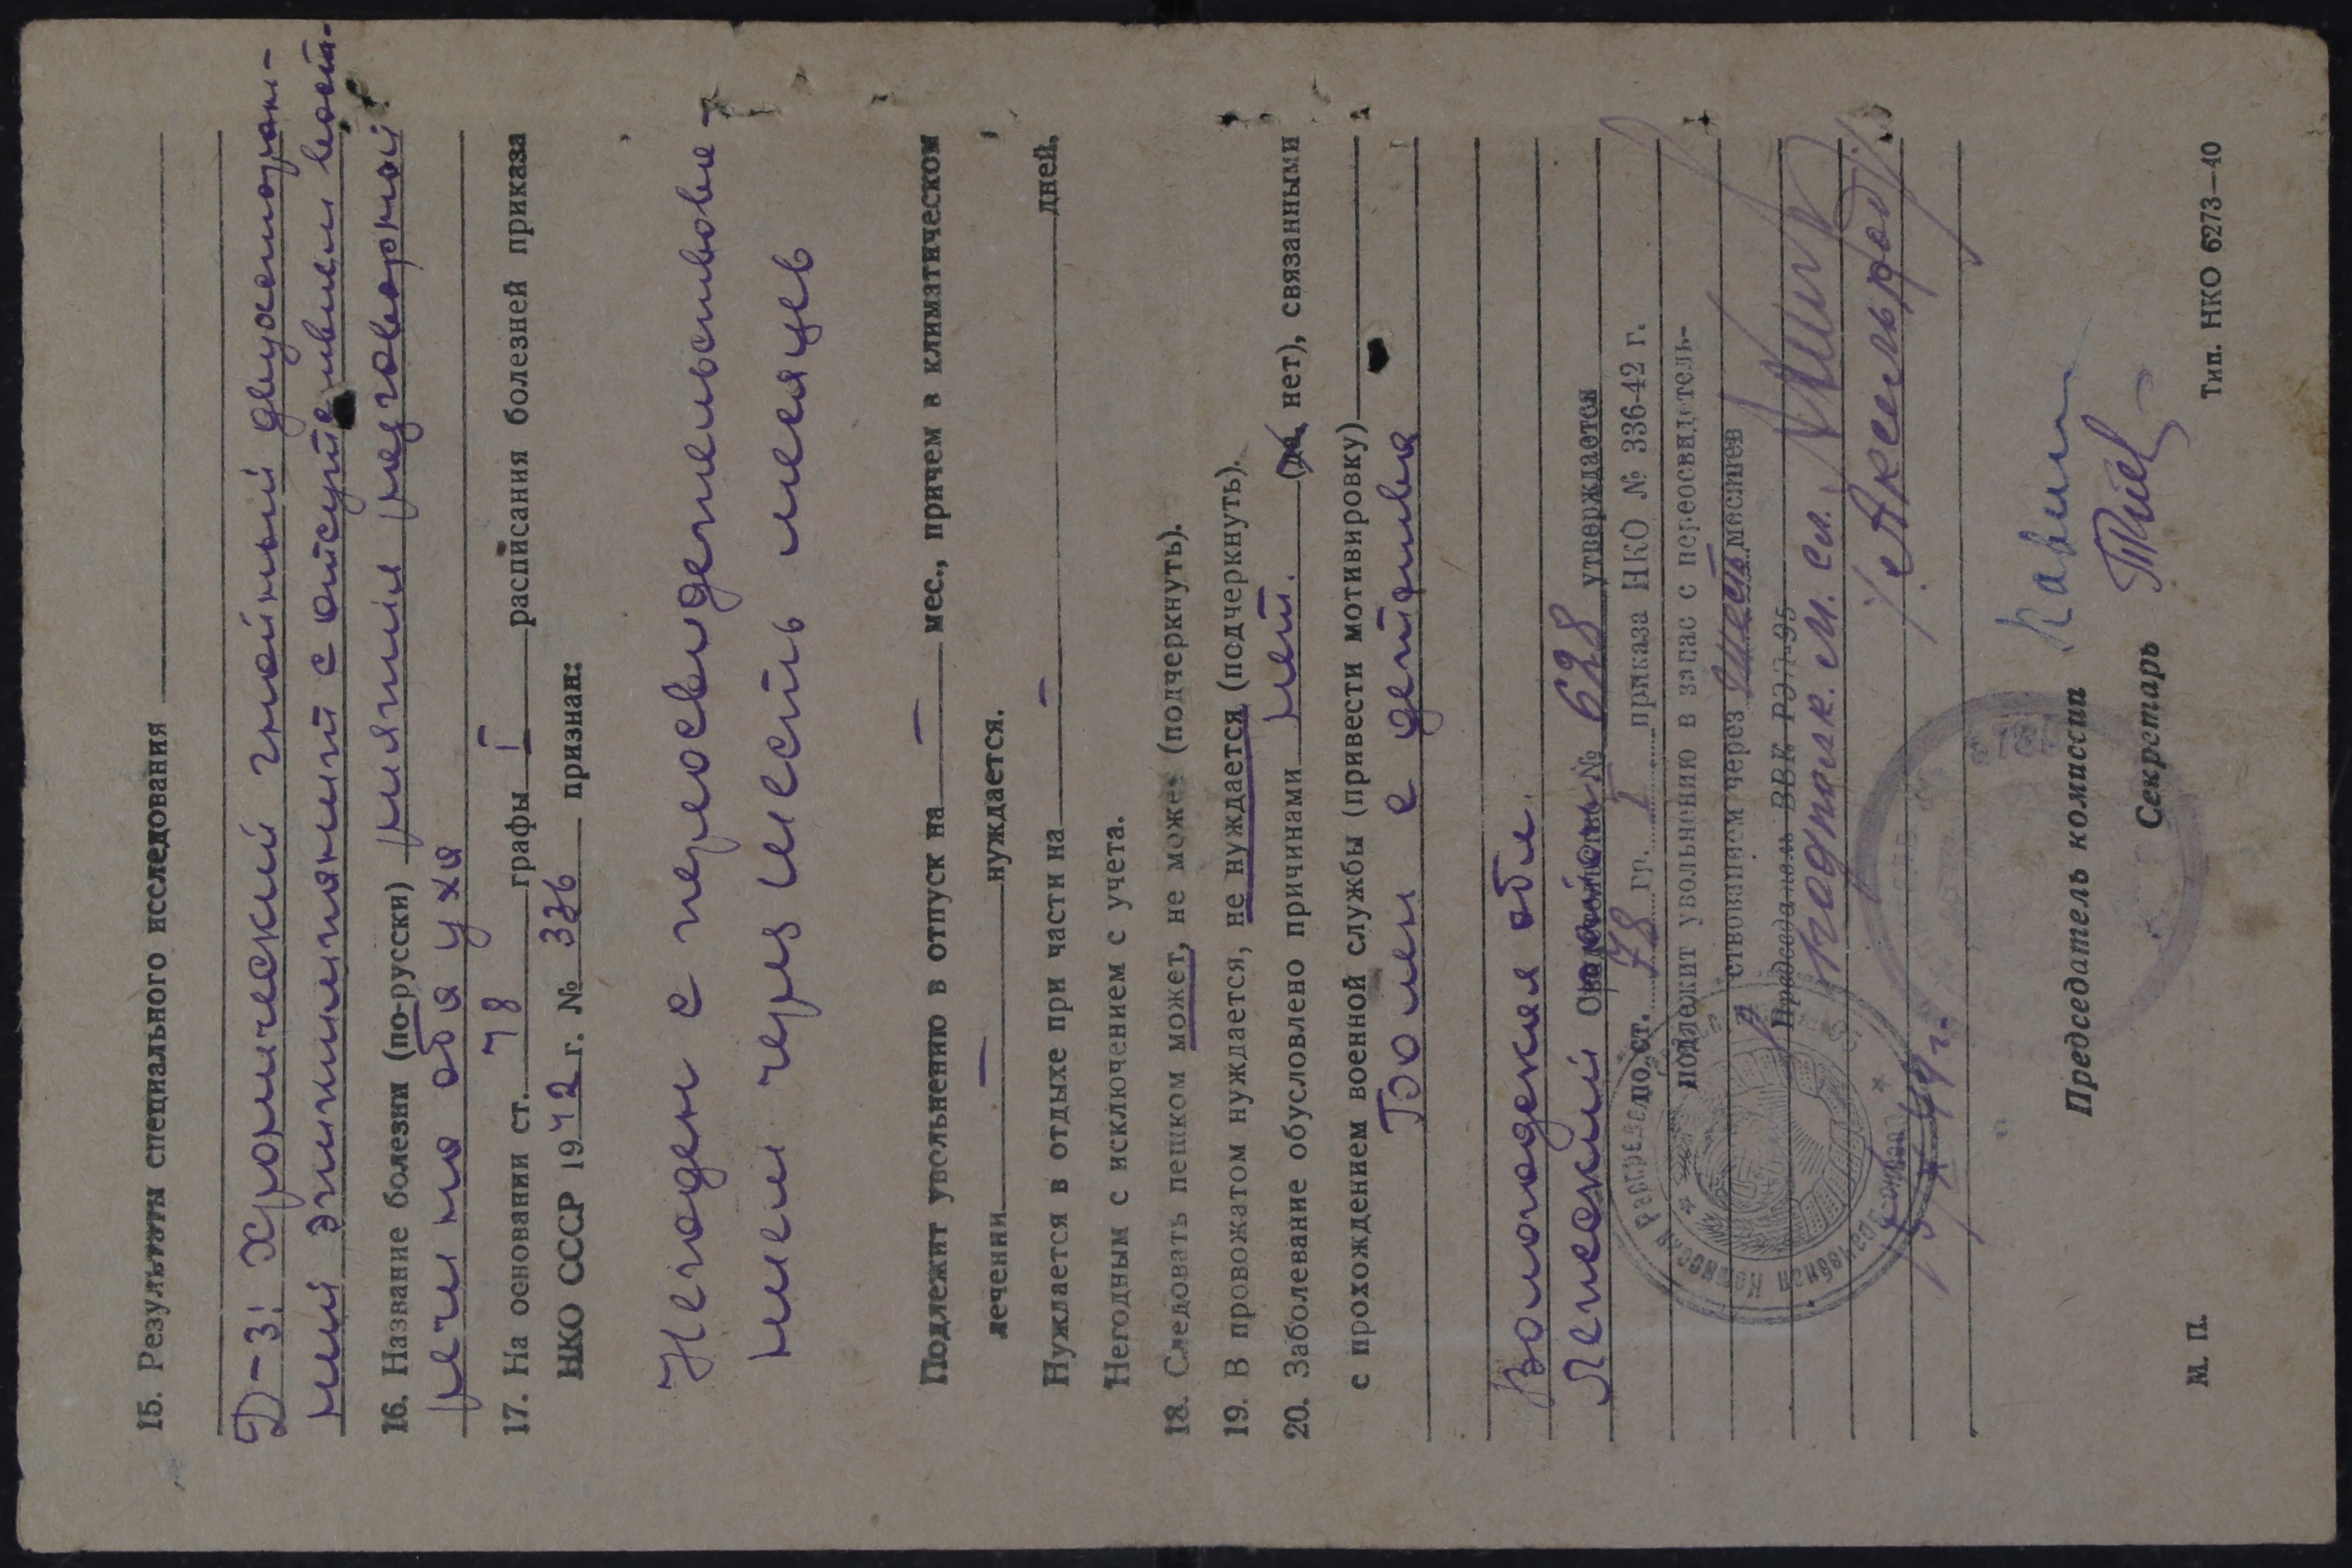 15. Результаты специального исследования
Д-з: Хронический гнойный двухсторон-
ний эпитимпанит с отсутствием восп-
16. Название болезни (по-русски) риятия разговорной
речи на оба уха
17. На основании ст. 78 графы I расписания болезней приказа
НКО СССР 1942 г. № 336 признан:
Негоден с переосвидетельствова-
нием через шесть месяцев
Подлежит увольнению в отпуск на — мес., причем в климатическом
лечении — нуждается.
Нуждается в отдыхе при части на — дней.
Негодным с исключением с учета.
18. Следовать пешком может, не может (подчеркнуть).
19. В провожатом нуждается, не нуждается (подчеркнуть).
20. Заболевание обусловлено причинами нет. (да, нет), связанными
с прохождением военной службы (привести мотивировку)
Болен с детства
Вологодская обл.
Ленский район № 628 утверждается
по ст. 78 гр. I приказа НКО № 336-42 г.
подлежит увольнению в запас с переосвидетель-
ствованием через шесть месяцев
Председатель ВВК РЭП-95
подполк. м. сл.
/Аксельрод/
44 г.
Председатель комиссии
Секретарь
М. П.
Тип. НКО 6273—40